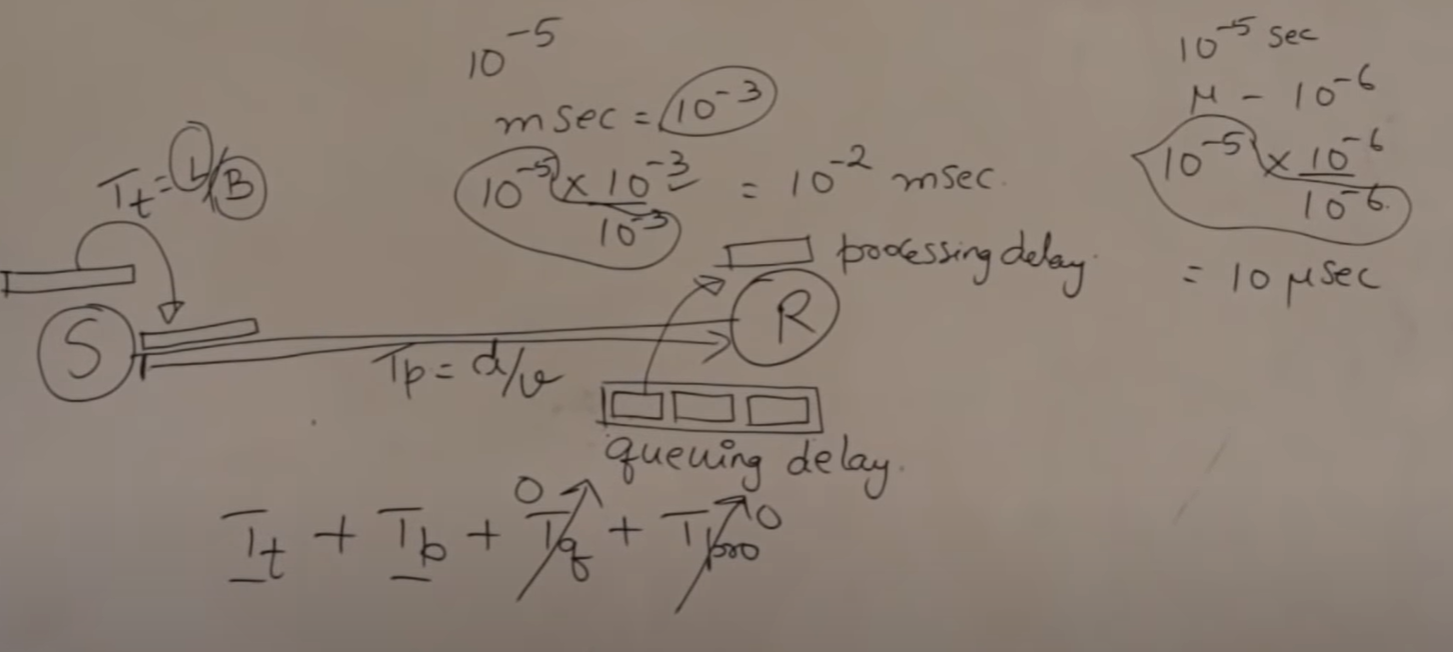 10⁻⁵
msec = 10⁻³
10⁻⁵ × 10⁻³ / 10⁻³ = 10⁻² msec.
10⁻⁵ sec
μ - 10⁻⁶
10⁻⁵ × 10⁻⁶ / 10⁻⁶
= 10 μsec
Tt = L/B
processing delay
S
R
Tp = d/v
queuing delay.
Tt + Tp + Tq 0 + Tpro 0